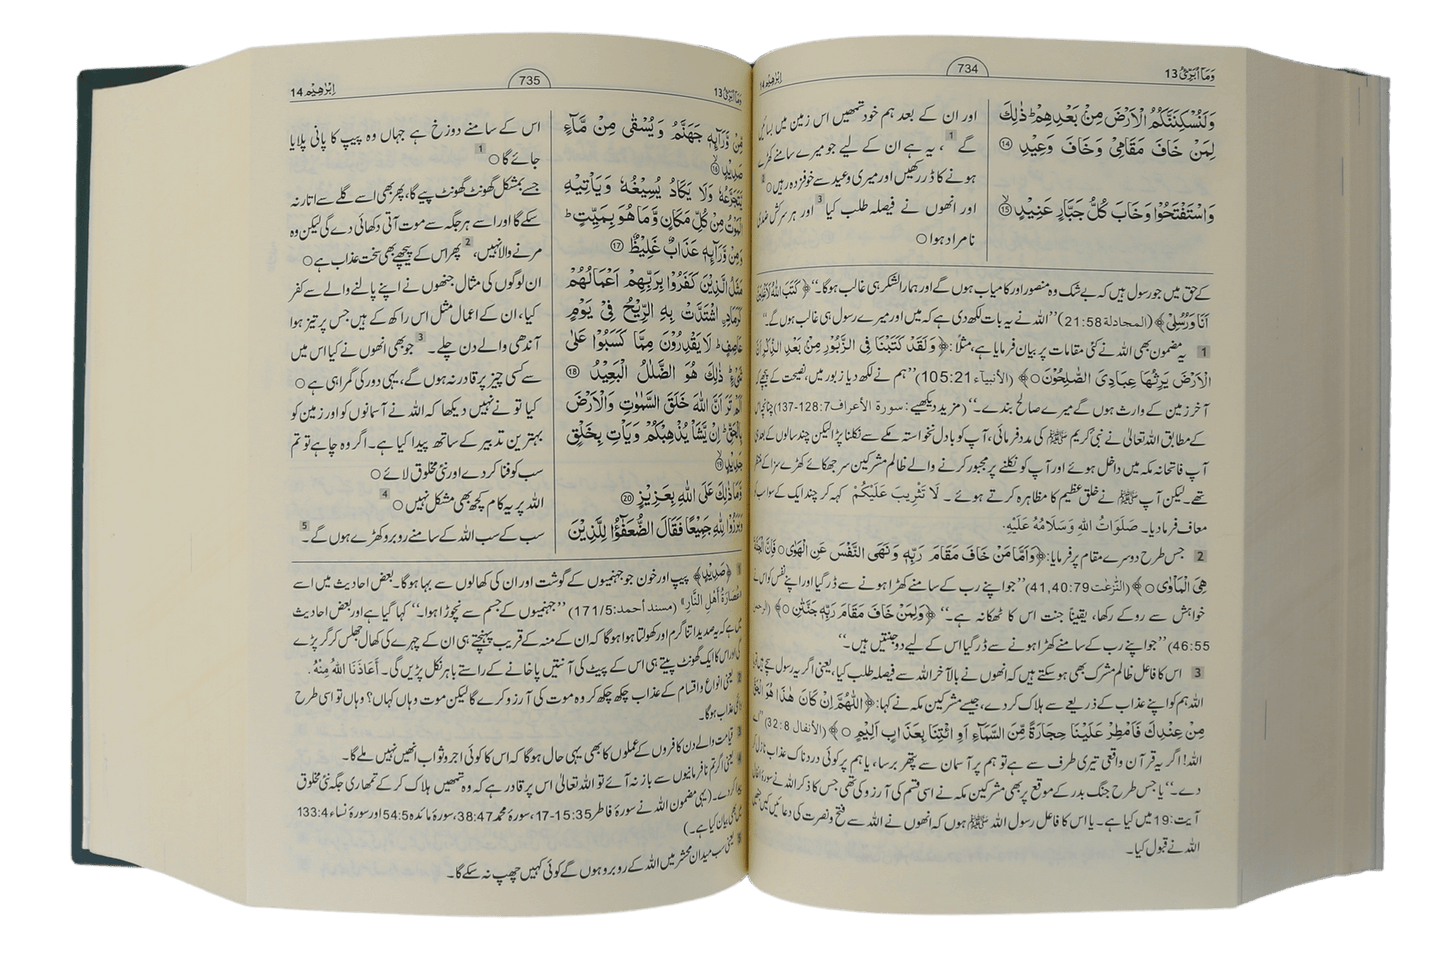 وَمَآ اُبَرِّئُ 13
734
اِبْرٰهِيْم 14
وَلَنُسْكِنَنَّكُمُ الْاَرْضَ مِنْۢ بَعْدِهِمْ ؕ ذٰلِكَ
لِمَنْ خَافَ مَقَامِیْ وَخَافَ وَعِیْدِ ⑭
وَاسْتَفْتَحُوْا وَخَابَ كُلُّ جَبَّارٍ عَنِیْدٍ ⑮
اور ان کے بعد ہم خود تمھیں اس زمین میں بسائیں
گے 1 ، یہ ہے ان کے لیے جو میرے سامنے کھڑے
ہونے کا ڈر رکھیں اور میری وعید سے خوفزدہ رہیں ○
اور انھوں نے فیصلہ طلب کیا 3 اور ہر سرکش ضدی
نامراد ہوا ○
کے حق میں جو رسول ہیں کہ بے شک وہ منصور اور کامیاب ہوں گے اور ہمارا لشکر ہی غالب ہوگا۔“ ﴿ كَتَبَ اللّٰهُ لَاَغْلِبَنَّ
اَنَا وَرُسُلِیْ ﴾ (المجادلة 21:58) ”اللہ نے یہ بات لکھ دی ہے کہ میں اور میرے رسول ہی غالب ہوں گے۔“
1 یہ مضمون بھی اللہ نے کئی مقامات پر بیان فرمایا ہے، مثلًا: ﴿ وَلَقَدْ كَتَبْنَا فِی الزَّبُوْرِ مِنْۢ بَعْدِ الذِّكْرِ اَنَّ
الْاَرْضَ یَرِثُهَا عِبَادِیَ الصّٰلِحُوْنَ ○ ﴾ (الأنبیآء 105:21) ”ہم نے لکھ دیا زبور میں، نصیحت کے پیچھے کہ
آخر زمین کے وارث ہوں گے میرے صالح بندے۔“ (مزید دیکھیے: سورة الأعراف 7:128-137) چنانچہ اس
کے مطابق اللہ تعالیٰ نے نبیٔ کریم ﷺ کی مدد فرمائی، آپ کو بادل نخواستہ مکے سے نکلنا پڑا لیکن چند سالوں کے بعد ہی
آپ فاتحانہ مکہ میں داخل ہوئے اور آپ کو نکلنے پر مجبور کرنے والے ظالم مشرکین سر جھکائے کھڑے سزا کے منتظر
تھے۔ لیکن آپ ﷺ نے خلق عظیم کا مظاہرہ کرتے ہوئے ۔ لَا تَثْرِيبَ عَلَيْكُمْ کہہ کر چند ایک کے سوا سب کو
معاف فرما دیا۔ صَلَوَاتُ اللّٰهِ وَسَلَامُهُ عَلَيْهِ.
2 جس طرح دوسرے مقام پر فرمایا: ﴿ وَاَمَّا مَنْ خَافَ مَقَامَ رَبِّهٖ وَنَهَی النَّفْسَ عَنِ الْهَوٰی ○ فَاِنَّ الْجَنَّةَ
هِیَ الْمَاْوٰی ○ ﴾ (النّٰزعٰت 79:41,40) ”جو اپنے رب کے سامنے کھڑا ہونے سے ڈر گیا اور اپنے نفس کو اس نے
خواہش سے روکے رکھا، یقینًا جنت اس کا ٹھکانہ ہے۔“ ﴿ وَلِمَنْ خَافَ مَقَامَ رَبِّهٖ جَنَّتٰنِ ○ ﴾ (الرحمٰن
46:55) ”جو اپنے رب کے سامنے کھڑا ہونے سے ڈر گیا اس کے لیے دو جنتیں ہیں۔“
3 اس کا فاعل ظالم مشرک بھی ہو سکتے ہیں کہ انھوں نے بالآخر اللہ سے فیصلہ طلب کیا، یعنی اگر یہ رسول سچے ہیں تو
اللہ ہم کو اپنے عذاب کے ذریعے سے ہلاک کر دے، جیسے مشرکین مکہ نے کہا: ﴿ اللّٰهُمَّ اِنْ كَانَ هٰذَا هُوَ الْحَقَّ
مِنْ عِنْدِكَ فَاَمْطِرْ عَلَیْنَا حِجَارَةً مِّنَ السَّمَآءِ اَوِ ائْتِنَا بِعَذَابٍ اَلِیْمٍ ○ ﴾ (الأنفال 32:8) ”اے
اللہ! اگر یہ قرآن واقعی تیری طرف سے ہے تو ہم پر آسمان سے پتھر برسا، یا ہم پر کوئی دردناک عذاب نازل کر
دے۔“ یا جس طرح جنگ بدر کے موقع پر بھی مشرکین مکہ نے اسی قسم کی آرزو کی تھی جس کا ذکر اللہ نے سورۂ انفال
آیت: 19 میں کیا ہے۔ یا اس کا فاعل رسول اللہ ﷺ ہوں کہ انھوں نے اللہ سے فتح و نصرت کی دعائیں کیں جنھیں
اللہ نے قبول کیا۔
وَمَآ اُبَرِّئُ 13
735
اِبْرٰهِيْم 14
مِّنْ وَّرَآىِٕهٖ جَهَنَّمُ وَیُسْقٰی مِنْ مَّآءٍ
صَدِیْدٍ ⑯
یَّتَجَرَّعُهٗ وَلَا یَكَادُ یُسِیْغُهٗ وَیَاْتِیْهِ
الْمَوْتُ مِنْ كُلِّ مَكَانٍ وَّمَا هُوَ بِمَیِّتٍ ؕ
وَمِنْ وَّرَآىِٕهٖ عَذَابٌ غَلِیْظٌ ⑰
مَثَلُ الَّذِیْنَ كَفَرُوْا بِرَبِّهِمْ اَعْمَالُهُمْ
كَرَمَادِ ِ۟اشْتَدَّتْ بِهِ الرِّیْحُ فِیْ یَوْمٍ
عَاصِفٍ ؕ لَا یَقْدِرُوْنَ مِمَّا كَسَبُوْا عَلٰی
شَیْءٍ ؕ ذٰلِكَ هُوَ الضَّلٰلُ الْبَعِیْدُ ⑱
اَلَمْ تَرَ اَنَّ اللّٰهَ خَلَقَ السَّمٰوٰتِ وَالْاَرْضَ
بِالْحَقِّ ؕ اِنْ یَّشَاْ یُذْهِبْكُمْ وَیَاْتِ بِخَلْقٍ
جَدِیْدٍ ⑲
وَّمَا ذٰلِكَ عَلَی اللّٰهِ بِعَزِیْزٍ ⑳
وَبَرَزُوْا لِلّٰهِ جَمِیْعًا فَقَالَ الضُّعَفٰٓؤُا لِلَّذِیْنَ
اس کے سامنے دوزخ ہے جہاں وہ پیپ کا پانی پلایا
جائے گا ○ 1
جسے بمشکل گھونٹ گھونٹ پیے گا، پھر بھی اسے گلے سے اتار نہ
سکے گا اور اسے ہر جگہ سے موت آتی دکھائی دے گی لیکن وہ
مرنے والا نہیں، 2 پھر اس کے پیچھے بھی سخت عذاب ہے ○
ان لوگوں کی مثال جنھوں نے اپنے پالنے والے سے کفر
کیا، ان کے اعمال مثل اس راکھ کے ہیں جس پر تیز ہوا
آندھی والے دن چلے۔ 3 جو بھی انھوں نے کیا اس میں
سے کسی چیز پر قادر نہ ہوں گے، یہی دور کی گمراہی ہے ○
کیا تو نے نہیں دیکھا کہ اللہ نے آسمانوں کو اور زمین کو
بہترین تدبیر کے ساتھ پیدا کیا ہے۔ اگر وہ چاہے تو تم
سب کو فنا کر دے اور نئی مخلوق لائے ○
اللہ پر یہ کام کچھ بھی مشکل نہیں ○ 4
سب کے سب اللہ کے سامنے روبرو کھڑے ہوں گے۔ 5
1 ﴿ صَدِیْدٍ ﴾ پیپ اور خون جو جہنمیوں کے گوشت اور ان کی کھالوں سے بہا ہوگا۔ بعض احادیث میں اسے
عُصَارَةُ أَهْلِ النَّارِ» (مسند أحمد: 171/5) ”جہنمیوں کے جسم سے نچوڑا ہوا۔“ کہا گیا ہے اور بعض احادیث
میں ہے کہ یہ صدید اتنا گرم اور کھولتا ہوا ہوگا کہ ان کے منہ کے قریب پہنچتے ہی ان کے چہرے کی کھال جھلس کر گر پڑے
گی اور اس کا ایک گھونٹ پیتے ہی اس کے پیٹ کی آنتیں پاخانے کے راستے باہر نکل پڑیں گی۔ أَعَاذَنَا اللّٰهُ مِنْهُ.
2 یعنی انواع و اقسام کے عذاب چکھ چکھ کر وہ موت کی آرزو کرے گا لیکن موت وہاں کہاں؟ وہاں تو اسی طرح
عذاب ہوگا۔
3 قیامت والے دن کافروں کے عملوں کا بھی یہی حال ہوگا کہ اس کا کوئی اجر و ثواب انھیں نہیں ملے گا۔
4 یعنی اگر تم نافرمانیوں سے باز نہ آئے تو اللہ تعالیٰ اس پر قادر ہے کہ وہ تمھیں ہلاک کر کے تمھاری جگہ نئی مخلوق
پیدا کر دے۔ (یہی مضمون اللہ نے سورۂ فاطر 35:15-17، سورۂ محمد 38:47، سورۂ مائدہ 54:5 اور سورۂ نساء 133:4
میں بھی بیان کیا ہے۔)
5 یعنی سب میدان محشر میں اللہ کے روبرو ہوں گے کوئی کہیں چھپ نہ سکے گا۔